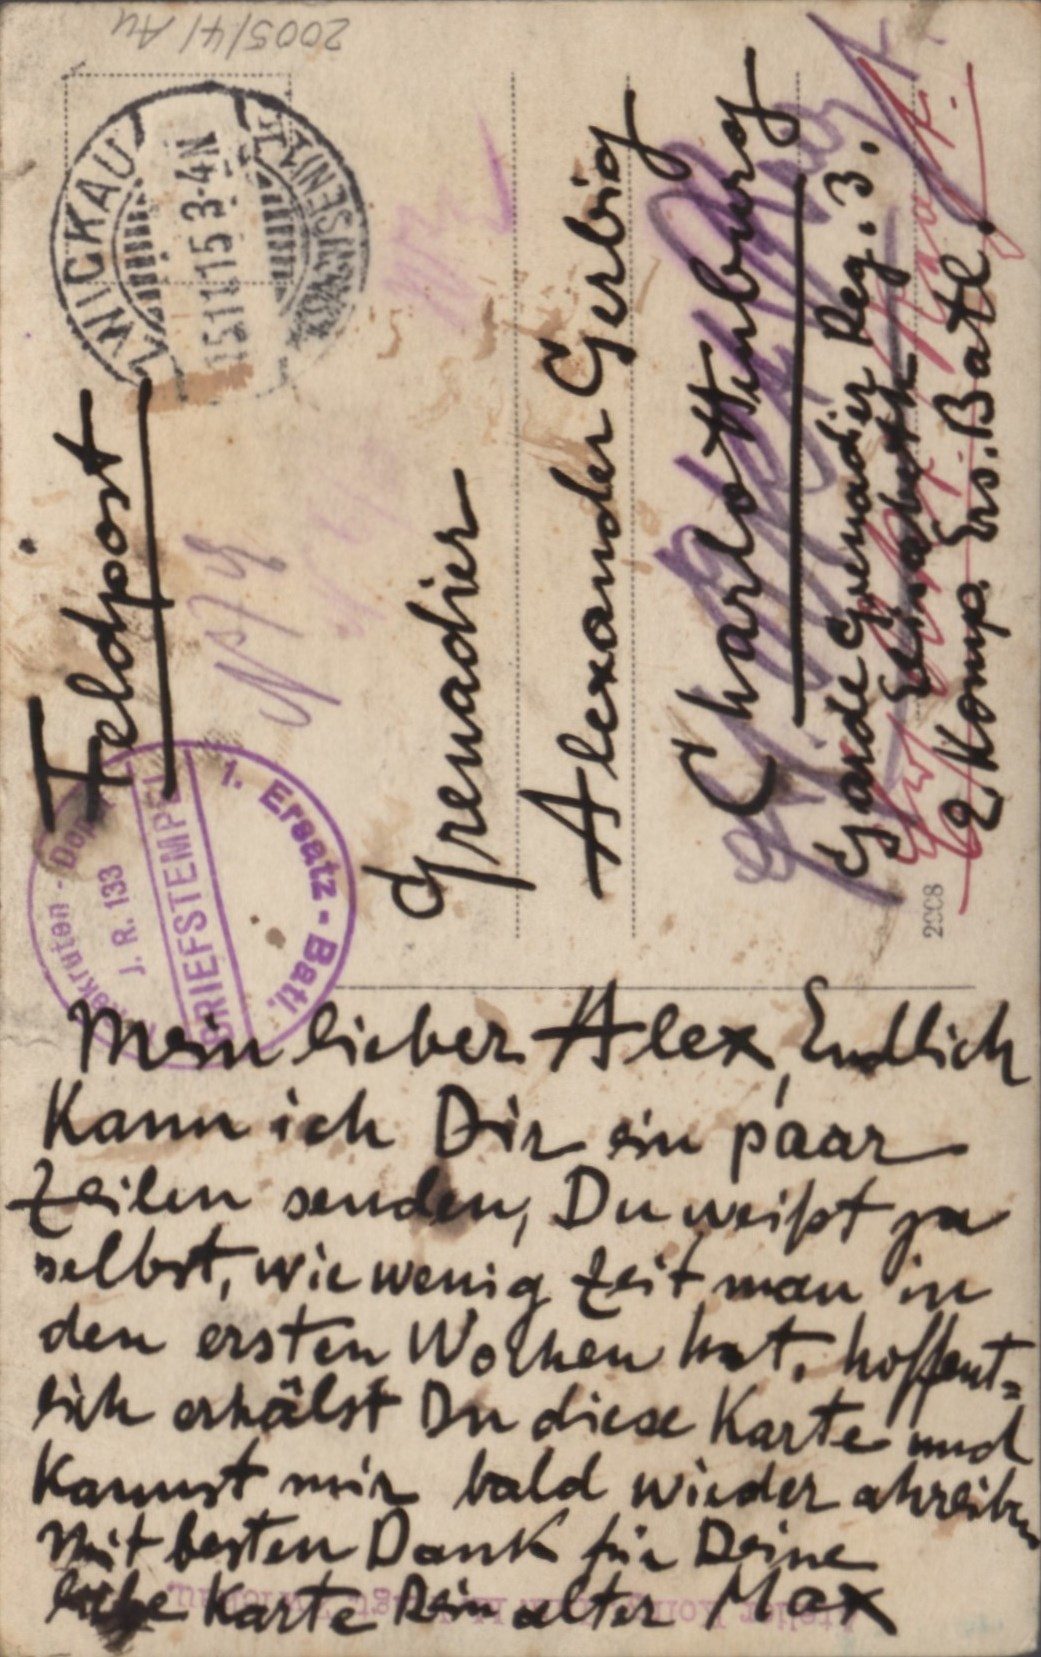 2005/41 Au
ZWICKAU
15.11.15 3-4N
Feldpost
1. Ersatz-Batl.
BRIEFSTEMPEL
J. R. 133
Rekruten-Dep
Grenadier
Alexander Gerbig
Charlottenburg
Garde Grenadier Reg. 3.
Elisabeth
2 Komp. Ers. Batl.
2008
Mein lieber Alex, Endlich
kann ich Dir ein paar
Zeilen senden, Du weißt ja
selbst, wie wenig Zeit man in
den ersten Wochen hat. hoffent=
lich erhälst Du diese Karte und
kannst mir bald wieder schreiben
Mit besten Dank für Deine
liebe Karte Dein alter Max